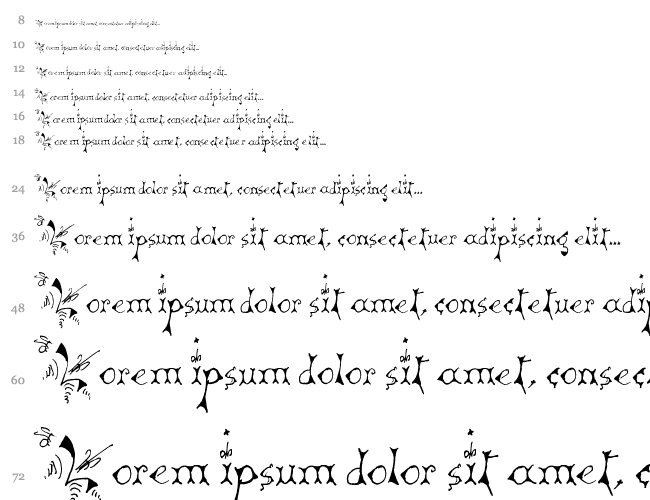 8 Lorem ipsum dolor sit amet, consectetuer adipiscing elit...
10 Lorem ipsum dolor sit amet, consectetuer adipiscing elit...
12 Lorem ipsum dolor sit amet, consectetuer adipiscing elit...
14 Lorem ipsum dolor sit amet, consectetuer adipiscing elit...
16 Lorem ipsum dolor sit amet, consectetuer adipiscing elit...
18 Lorem ipsum dolor sit amet, consectetuer adipiscing elit...
24 Lorem ipsum dolor sit amet, consectetuer adipiscing elit...
36 Lorem ipsum dolor sit amet, consectetuer adipiscing elit...
48 Lorem ipsum dolor sit amet, consectetuer adip
60 Lorem ipsum dolor sit amet, consec
72 Lorem ipsum dolor sit amet, c